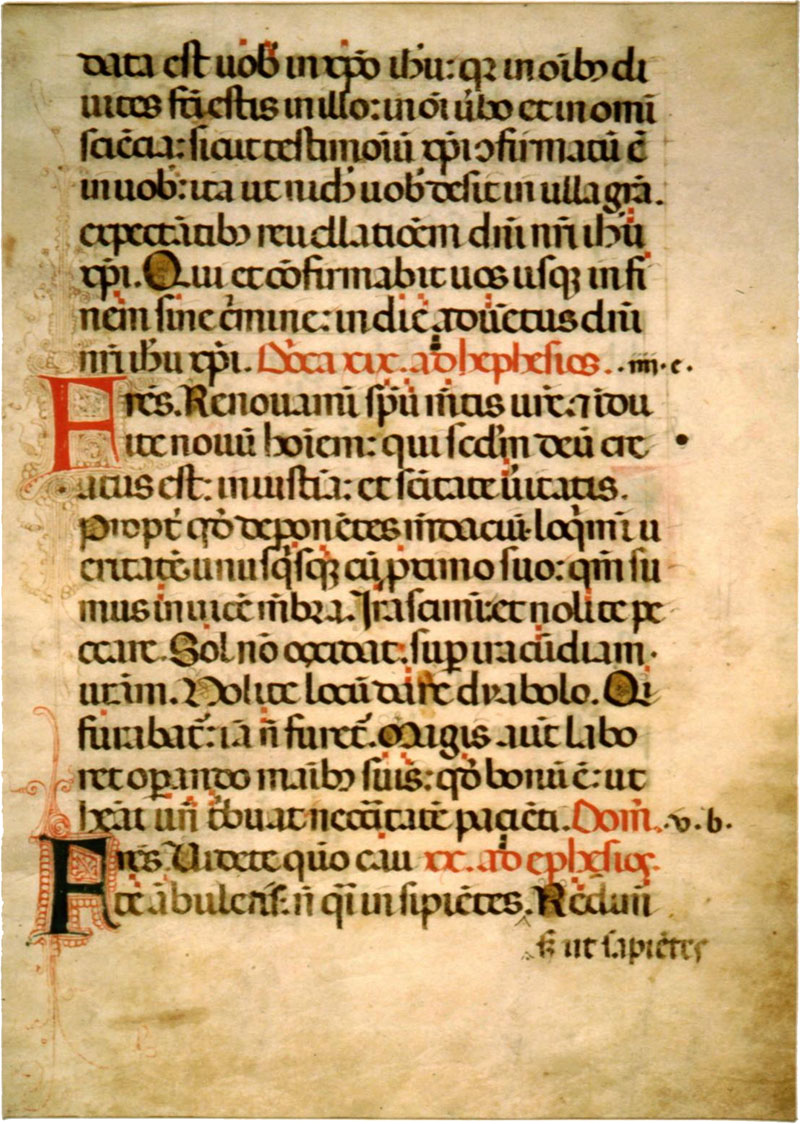 data est uob̄ in xp̄o ih̄u: qꝛ in oīb; di
uites fc̄i estis in illo: in oī u̓bo et in omī
sciēcia: sicut testimoīū xp̄i ꝯfirmatū ē
in uob̄: ita ut nich̓ uob̄ desit in ulla grā.
expectātib; reuellatiōem dn̄i nr̄i ih̄u
xp̄i. Qui et cōfirmabit uos usqꝫ in fi
nem sine c̓mine: in die aduētus dn̄i
nr̄i ih̄u xp̄i. Dōca xix. ad hephesios. .iiii.c.
Fr̄es. Renouamī sp̄u m̄tis ur̄e: ⁊ īdu
ite nouū hoīem: qui scd̄m deū cre
atus est: in iustīa: et sc̄itate u̓itatis.
Propt̓ qd̄ deponētes m̄daciū loq̓mī u
eritatē unusq̓sqꝫ cū ꝓximo suo: qm̄ su
mus inuicē m̄bra. Irascimī: et nolite pe
ccare. Sol nō occidat sup̄ iracūdiam
ur̄am. Nolite locū dare diabolo. Qi
furabat̓: iā n̄ furet̓. Magis aut̄ labo
ret oꝑando maīb; suis: qd̄ bonū ē: ut
heāt un̄ t̓buat necc̄itatē pacienti. Dom̄. .v.b.
Fr̄es. Videte quō cau xx. ad ephesios.
te ābuletis: n̄ q̄i insipiētes. Redimī
s; ut sapiētes